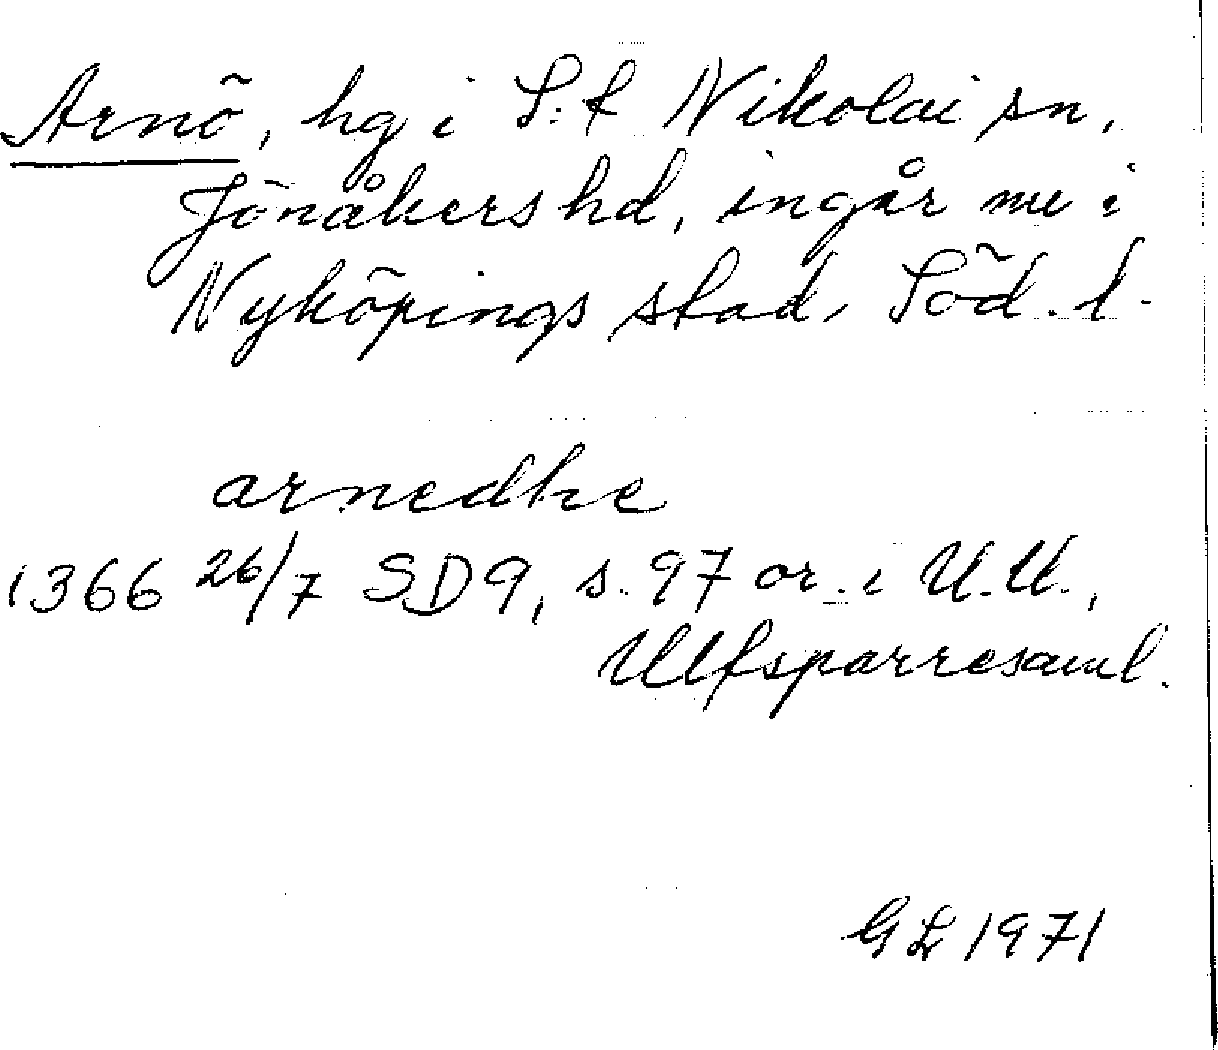 Arnö, hg i S:t Nikolai sn,
Jönåkers hd, ingår nu i
Nyköpings stad, Söd. l.
arnedhe
1366 26/7 SD9, s. 97 or. i U.U.,
Ulfsparresaml.
GL 1971